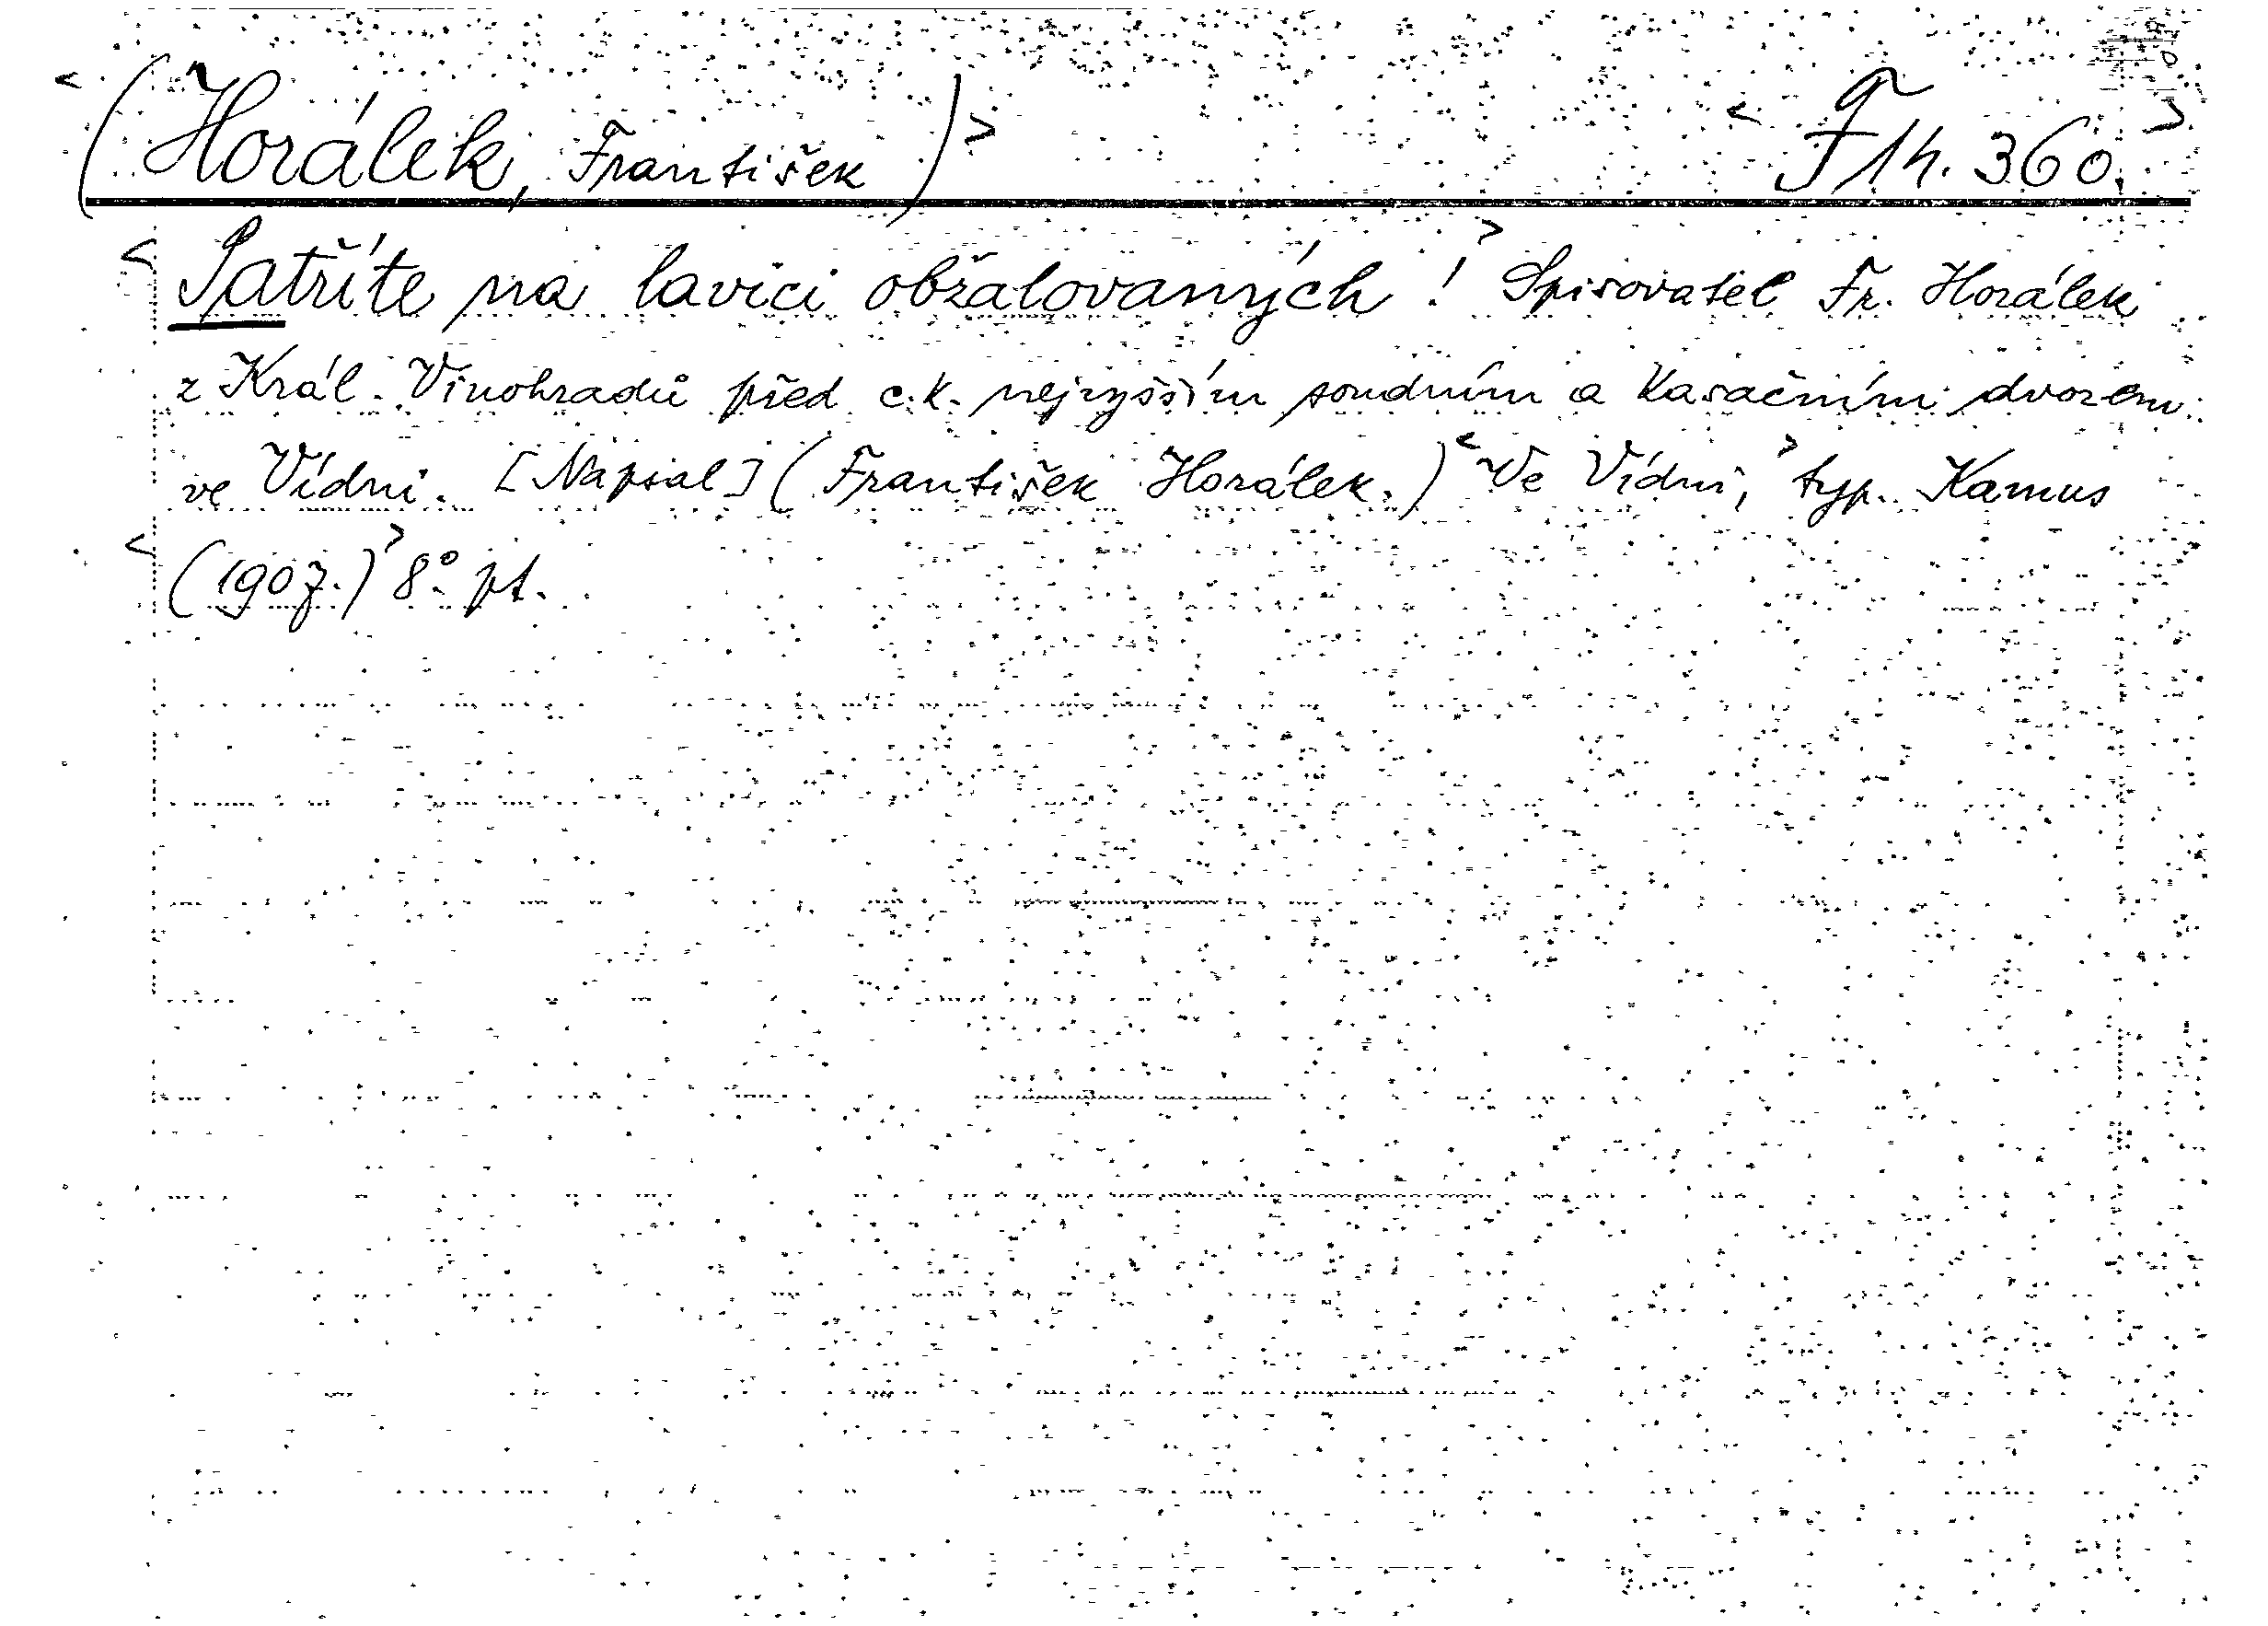 <(Horálek, František)> <F 14.360.>
<Patříte na lavici obžalovaných!> Spisovatel Fr. Horálek
z Král. Vinohradů před c.k. nejvyšším soudním a kasačním dvorem
ve Vídni. [Napsal] (František Horálek.) <Ve Vídni,> typ. Kamus
<(1907.)> 8° pt.